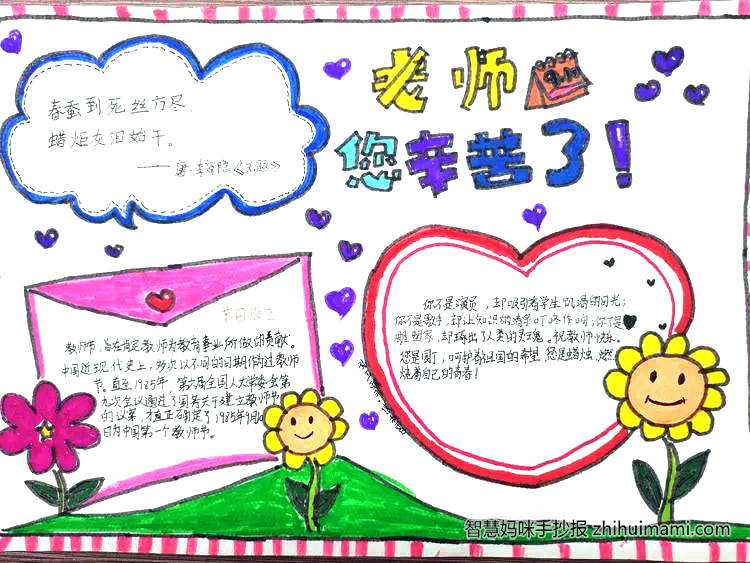 老师
9.10
您辛苦了!
春蚕到死丝方尽,
蜡炬成灰泪始干。
——唐·李商隐《无题》
节日设立
教师节,旨在肯定教师为教育事业所做的贡献。
中国近现代史上,多次以不同的日期作过教师
节。直至1985年,第六届全国人大常委会第
九次会议通过了国务院关于建立教师节
的议案,才真正确定了1985年9月10
日为中国第一个教师节。
你不是演员,却吸引着学生饥渴的目光;
你不是歌手,却让知识的清泉叮咚作响;你不是
雕塑家,却琢出了人类的灵魂。祝教师快乐。
您是园丁,呵护教祖国的希望,您是蜡烛,燃
烧着自己的青春!
智慧妈咪手抄报 zhihuimami.com